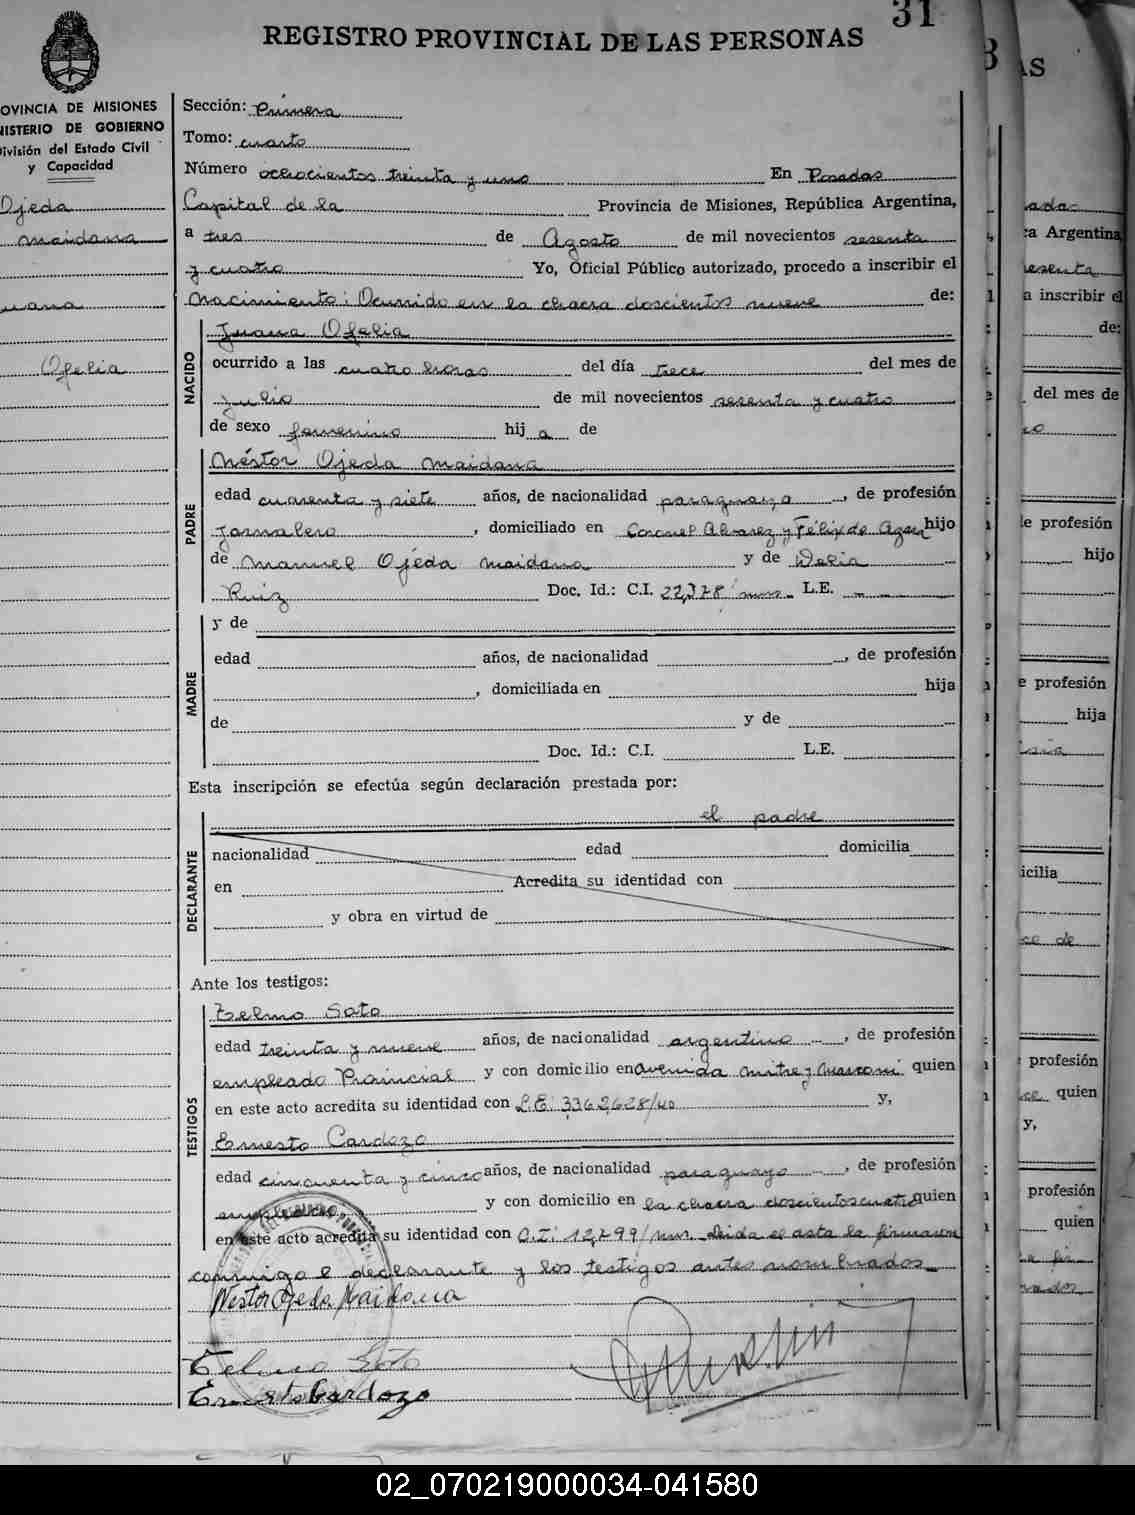 31
REGISTRO PROVINCIAL DE LAS PERSONAS
OVINCIA DE MISIONES
NISTERIO DE GOBIERNO
ivisión del Estado Civil
y Capacidad
Ojeda
maidana
uana
Ofelia
Sección: Primera
Tomo: cuarto
Número ochocientos treinta y uno En Posadas
Capital de la Provincia de Misiones, República Argentina,
a tres de Agosto de mil novecientos sesenta
y cuatro Yo, Oficial Público autorizado, procedo a inscribir el
Nacimiento: Ocurrido en la chacra doscientos nueve de:
NACIDO
Juana Ofelia
ocurrido a las cuatro horas del día trece del mes de
Julio de mil novecientos sesenta y cuatro
de sexo femenino hij a de
PADRE
Néstor Ojeda maidana
edad cuarenta y siete años, de nacionalidad paraguayo, de profesión
Jornalero, domiciliado en Coronel Alvarez y Félix de Azara hijo
de Manuel Ojeda maidana y de Delia
Ruiz Doc. Id.: C.I. 22.378 L.E.
MADRE
y de
edad años, de nacionalidad , de profesión
, domiciliada en hija
de y de
Doc. Id.: C.I. L.E.
Esta inscripción se efectúa según declaración prestada por:
DECLARANTE
el padre
nacionalidad edad domicilia
en Acredita su identidad con
y obra en virtud de
Ante los testigos:
TESTIGOS
Telmo Soto
edad treinta y nueve años, de nacionalidad argentino, de profesión
empleado Provincial y con domicilio en avenida mitre y quien
en este acto acredita su identidad con L.E. 3362628/ y,
Ernesto Cardozo
edad cincuenta y cinco años, de nacionalidad paraguayo, de profesión
empleado y con domicilio en la chacra doscientos cuatro quien
en este acto acredita su identidad con C.I. 12.799/ Leída el acta la firmaron
conmigo el declarante y los testigos antes nombrados
Nestor Ojeda Maidana
Telmo Soto
Ernesto Cardozo
AS
ca Argentina,
esenta
a inscribir el
de:
del mes de
e profesión
hijo
e profesión
hija
icilia
profesión
quien
y,
profesión
quien
02_070219000034-041580